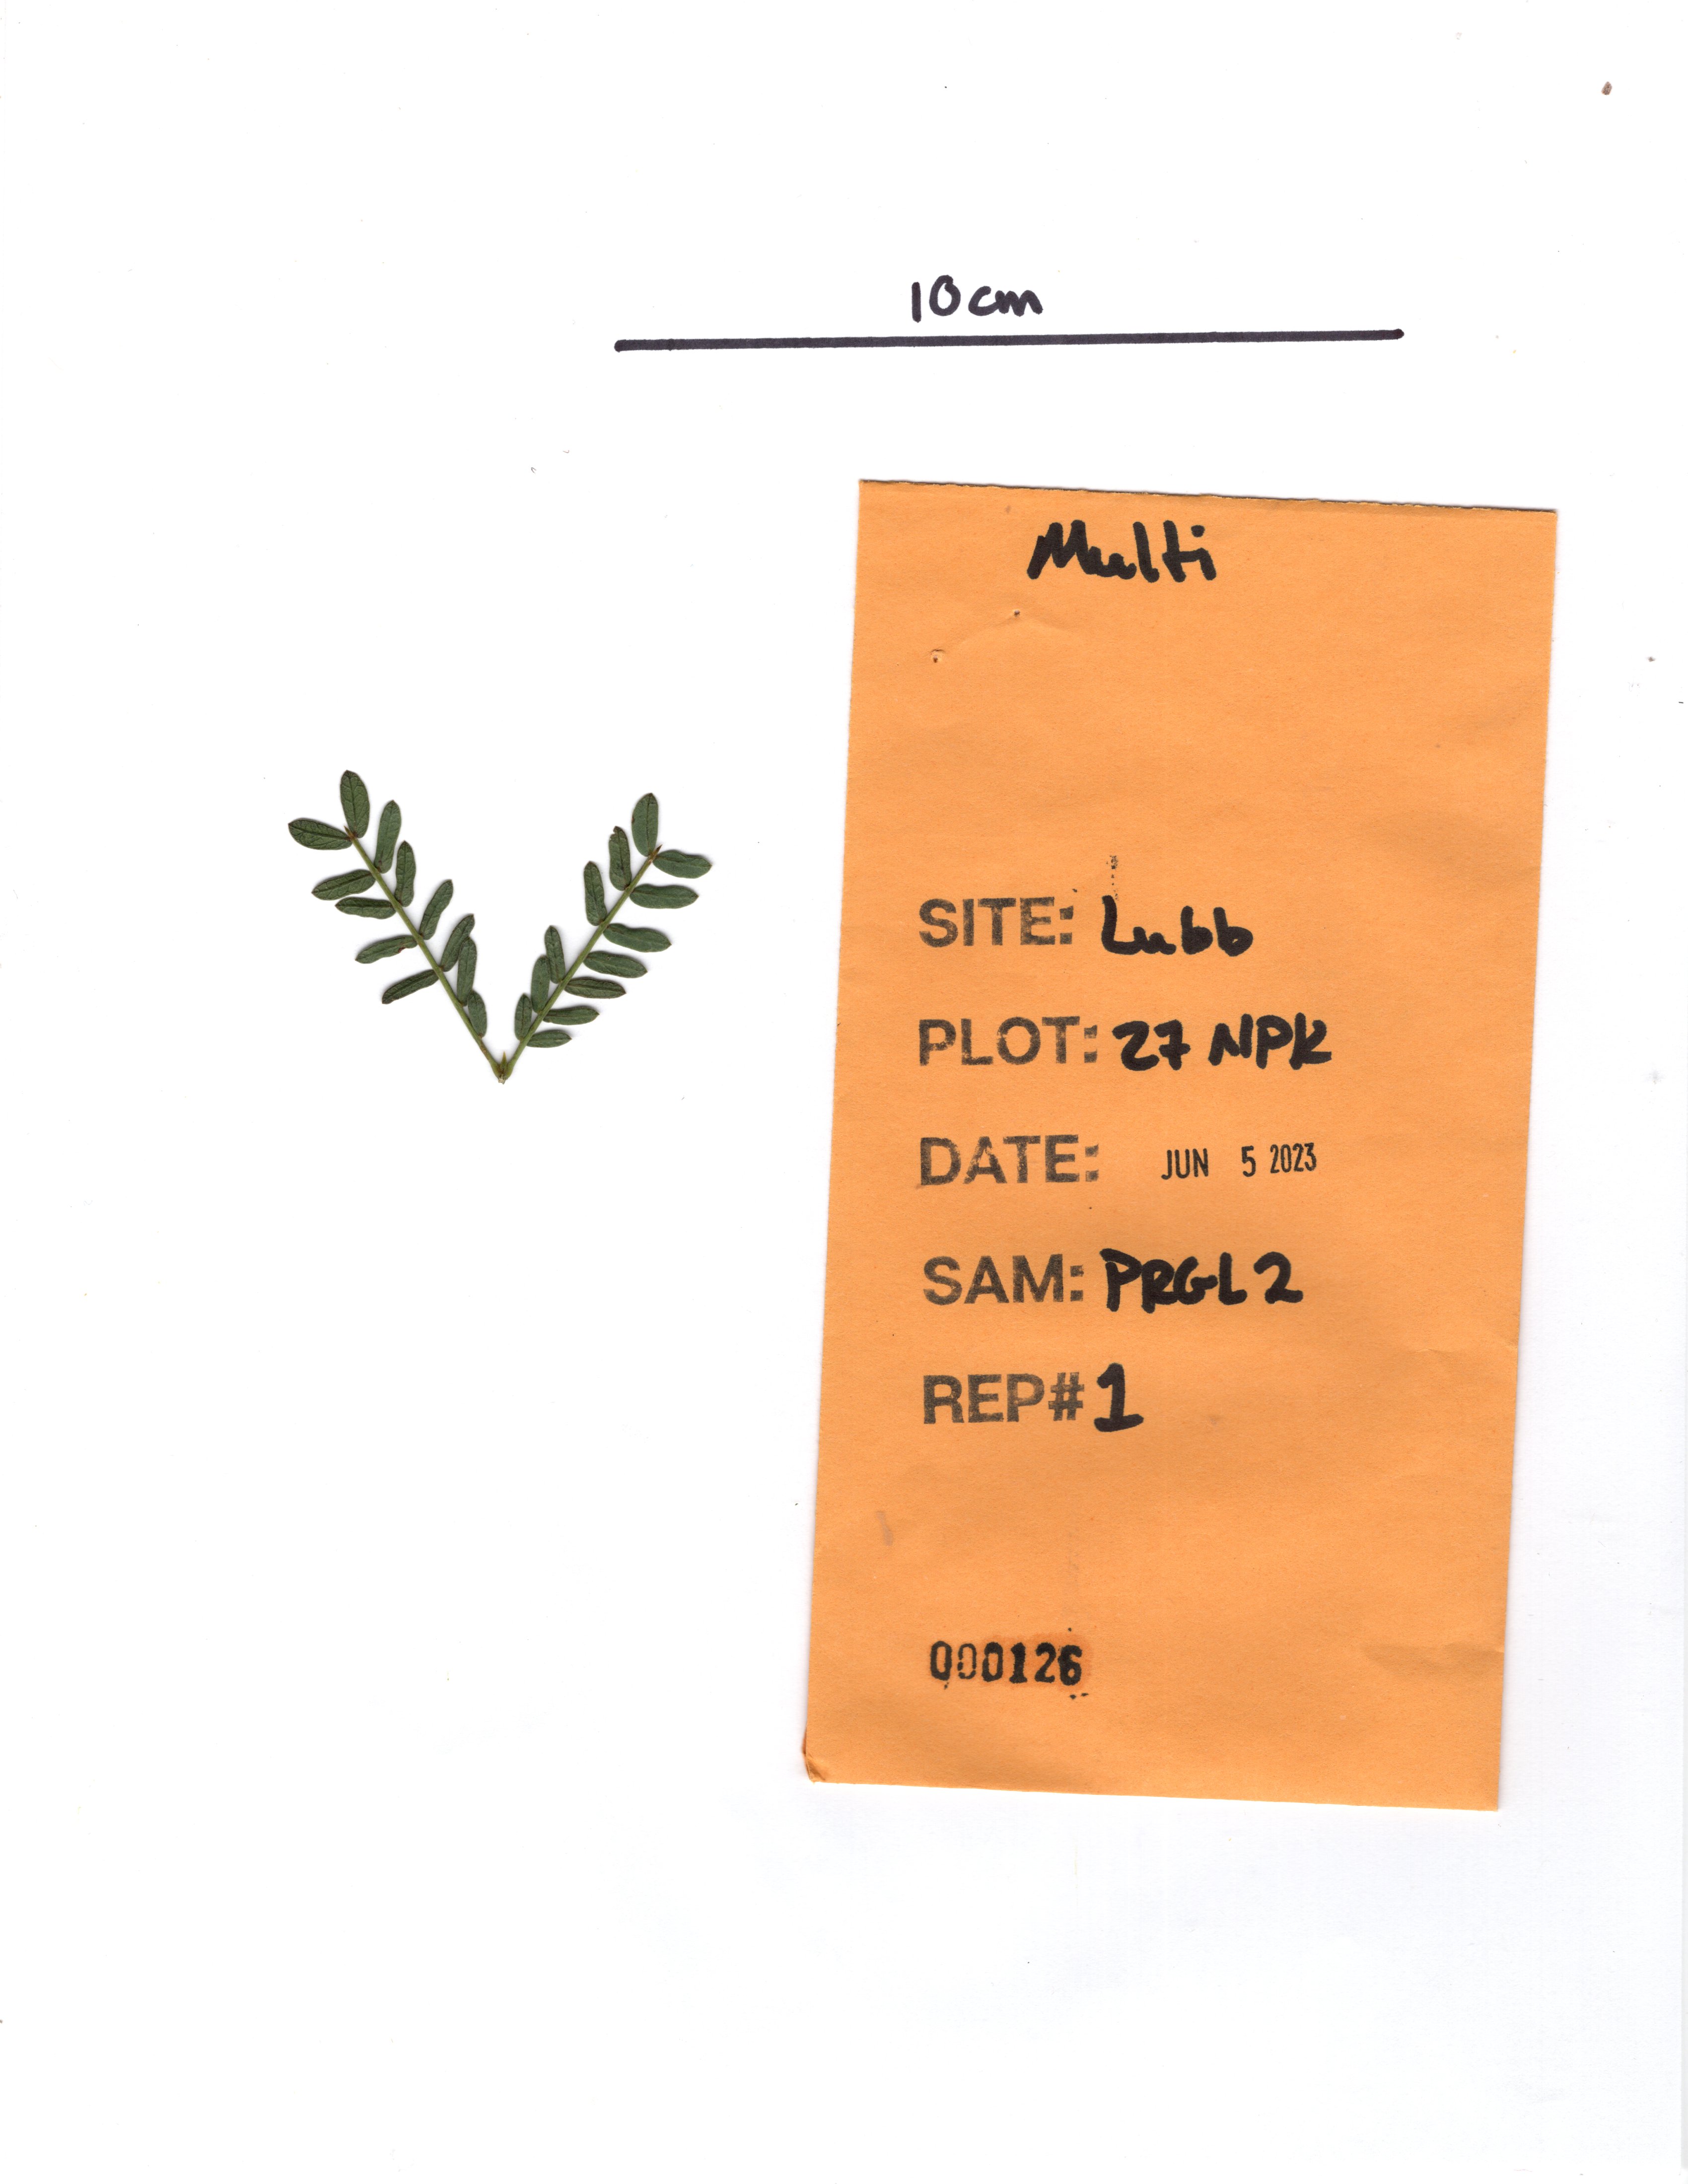 10cm
Multi
SITE: Lubb
PLOT: 27 NPK
DATE: JUN 5 2023
SAM: PRGL2
REP# 1
000126